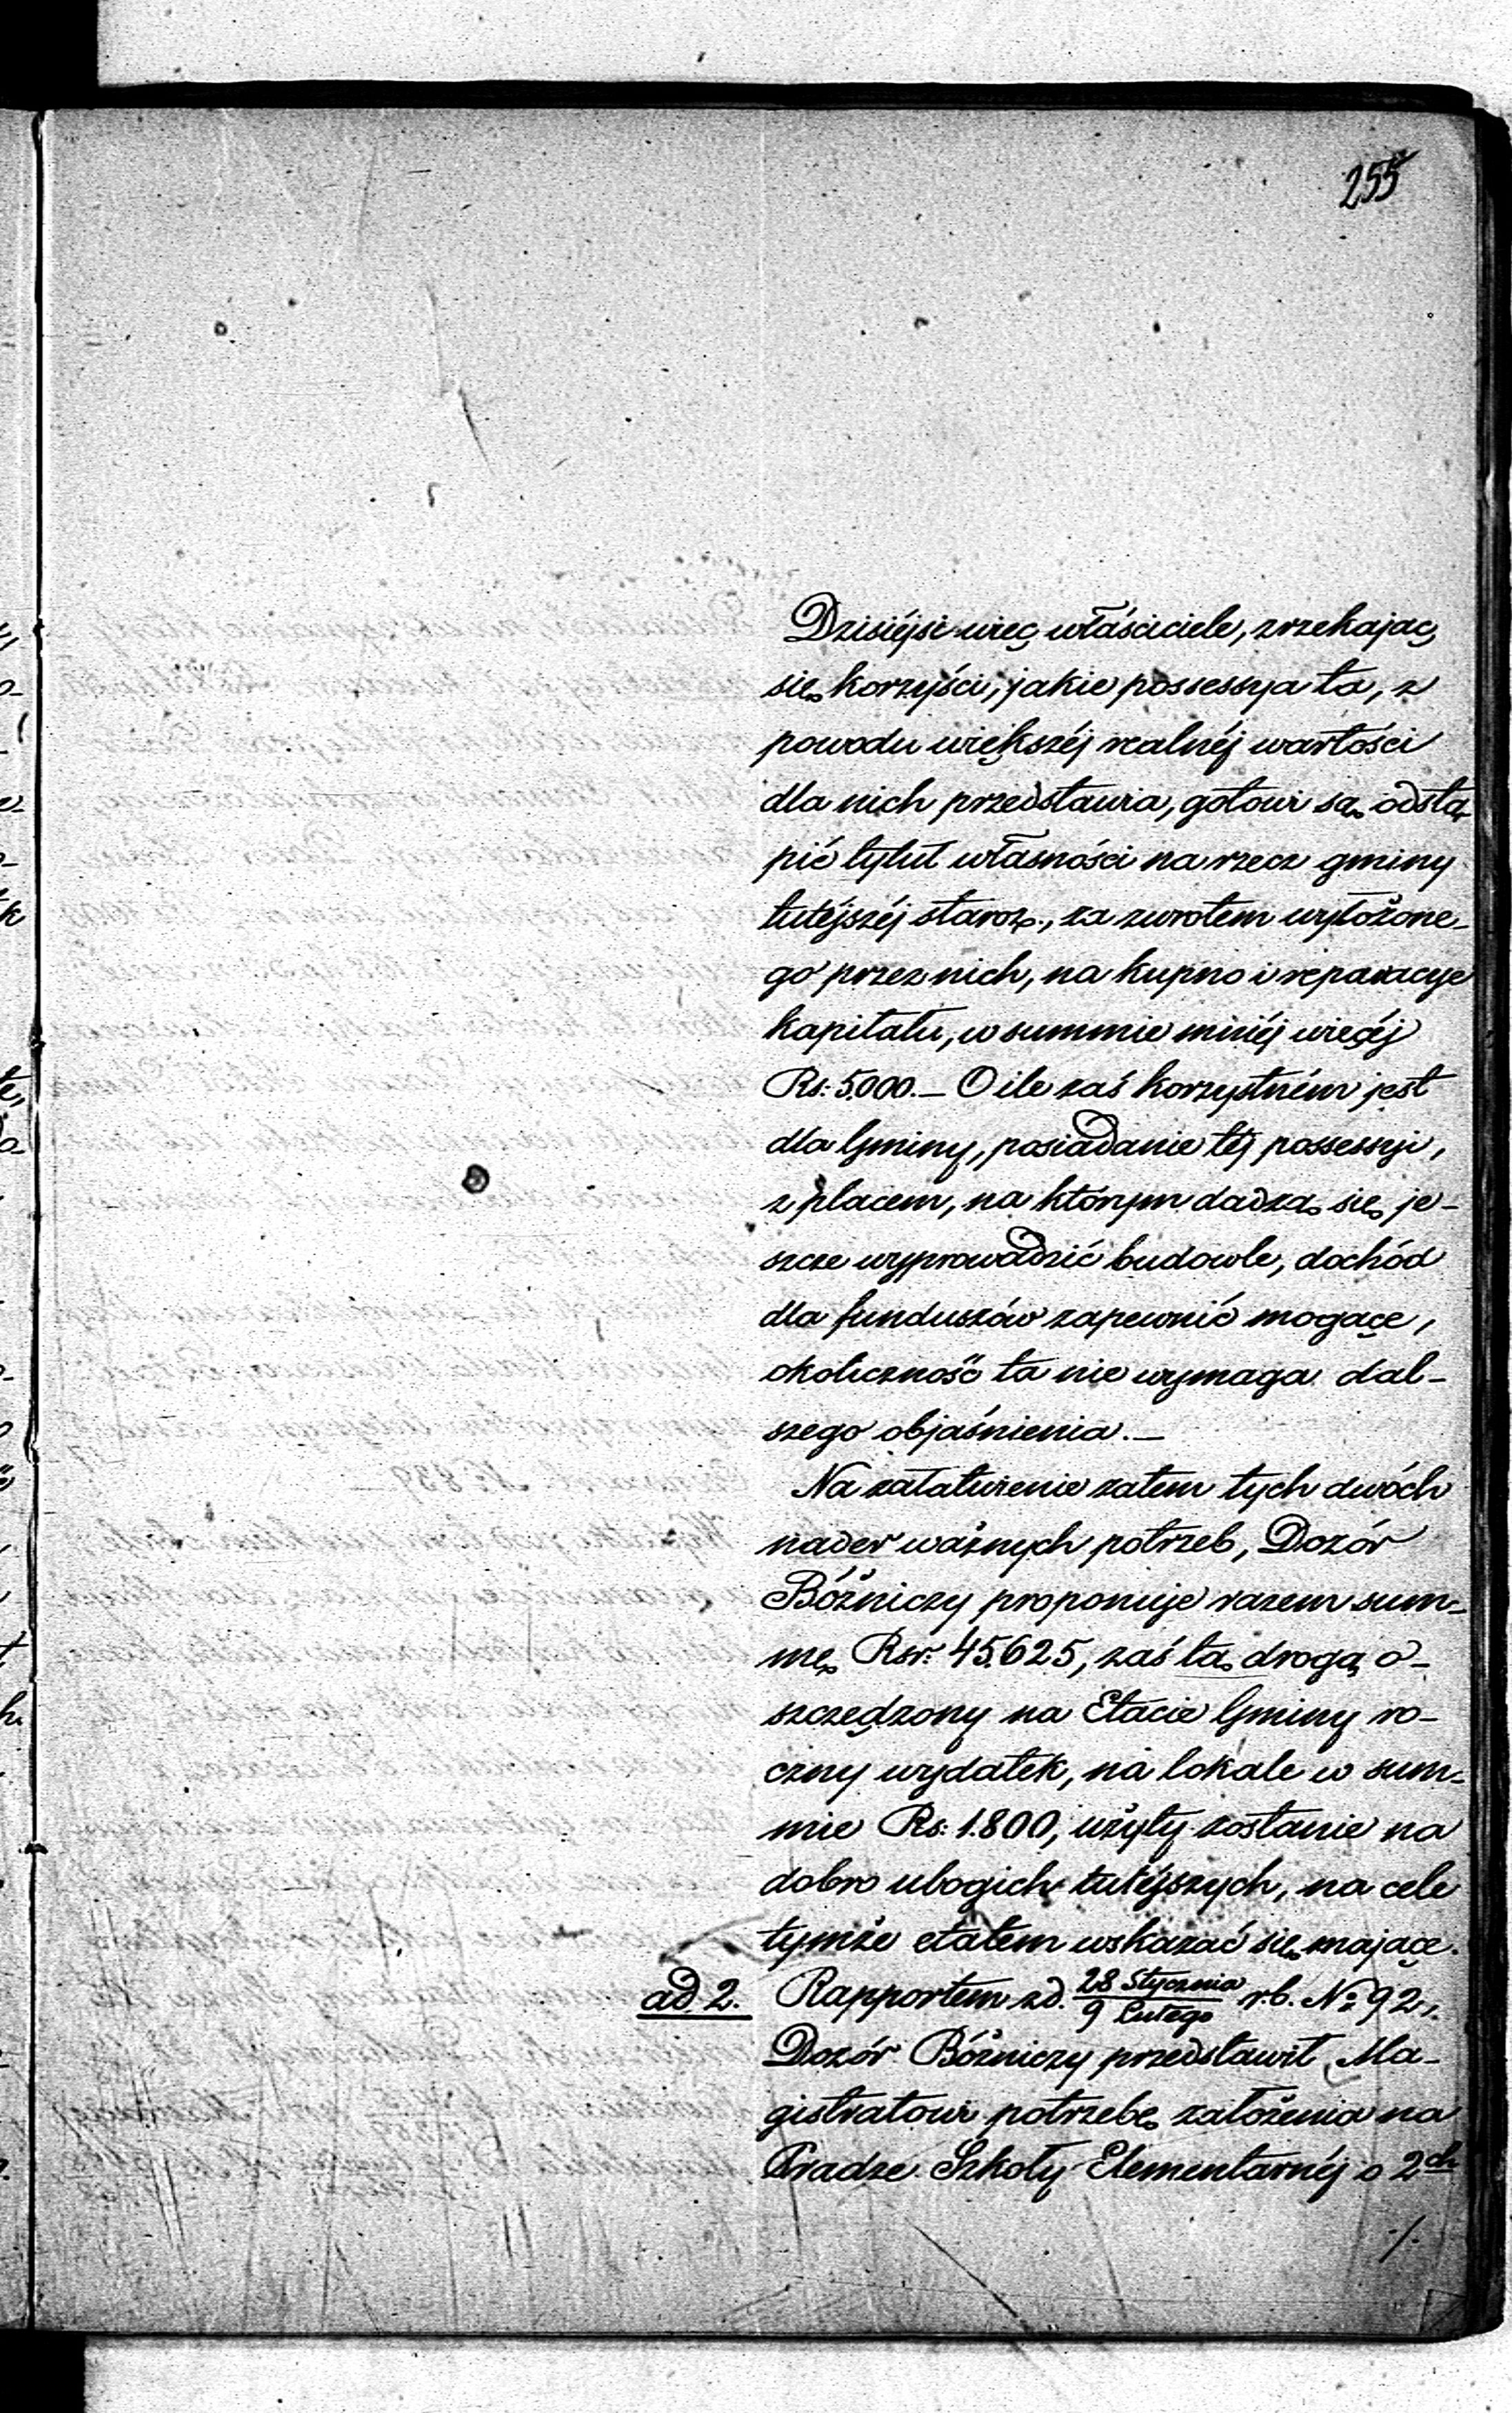 255
Dzisiéjsi więc właściciele, zrzekając
się korzyści, jakie possessya ta, z
powodu większéj realnéj wartości
dla nich przedstawia, gotowi są odstą-
pić tytuł własności na rzecz gminy
tutéjszéj staroz., za zwrotem wyłożone-
go przez nich, na kupno i reparacye
kapitału, w summie mniéj więcéj
Rs: 5.000. — O ile zaś korzystném jest
dla Gminy, posiadanie téj possessyi,
z placem, na którym dadzą się je-
szcze wyprowadzić budowle, dochód
dla funduszów zapewnić mogące,
okoliczność ta nie wymaga dal-
szego objaśnienia. —
Na załatwienie zatem tych dwóch
nader ważnych potrzeb, Dozór
Bóżniczy proponuje razem sum-
mę Rsr: 45.625, zaś tą drogą o-
szczędzony na Etacie Gminy ro-
czny wydatek, na lokale w sum-
mie Rs: 1.800, użyty zostanie na
dobro ubogich tutéjszych, na cele
tymże etatem wskazać się mające.
ad 2. Rapportem z d. 28 Stycznia / 9 Lutego r. b. № 92,
Dozór Bóżniczy przedstawił Ma-
gistratowi potrzebę założenia na
Pradze Szkoły Elementarnéj o 2ch
./.